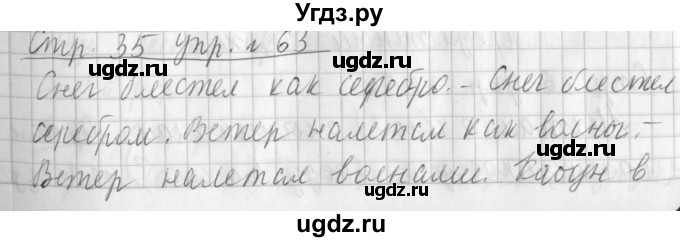 Угдз.ру
Стр. 35 упр. № 63
ugdz.ru
ugdz.ru
Снег блестел как серебро. - Снег блестел
ugdz.ru
серебром. Ветер налетал как волны. -
ugdz.ru
Ветер налетал волнами. Кабун в
ugdz.ru
ugdz.ru
ugdz.ru